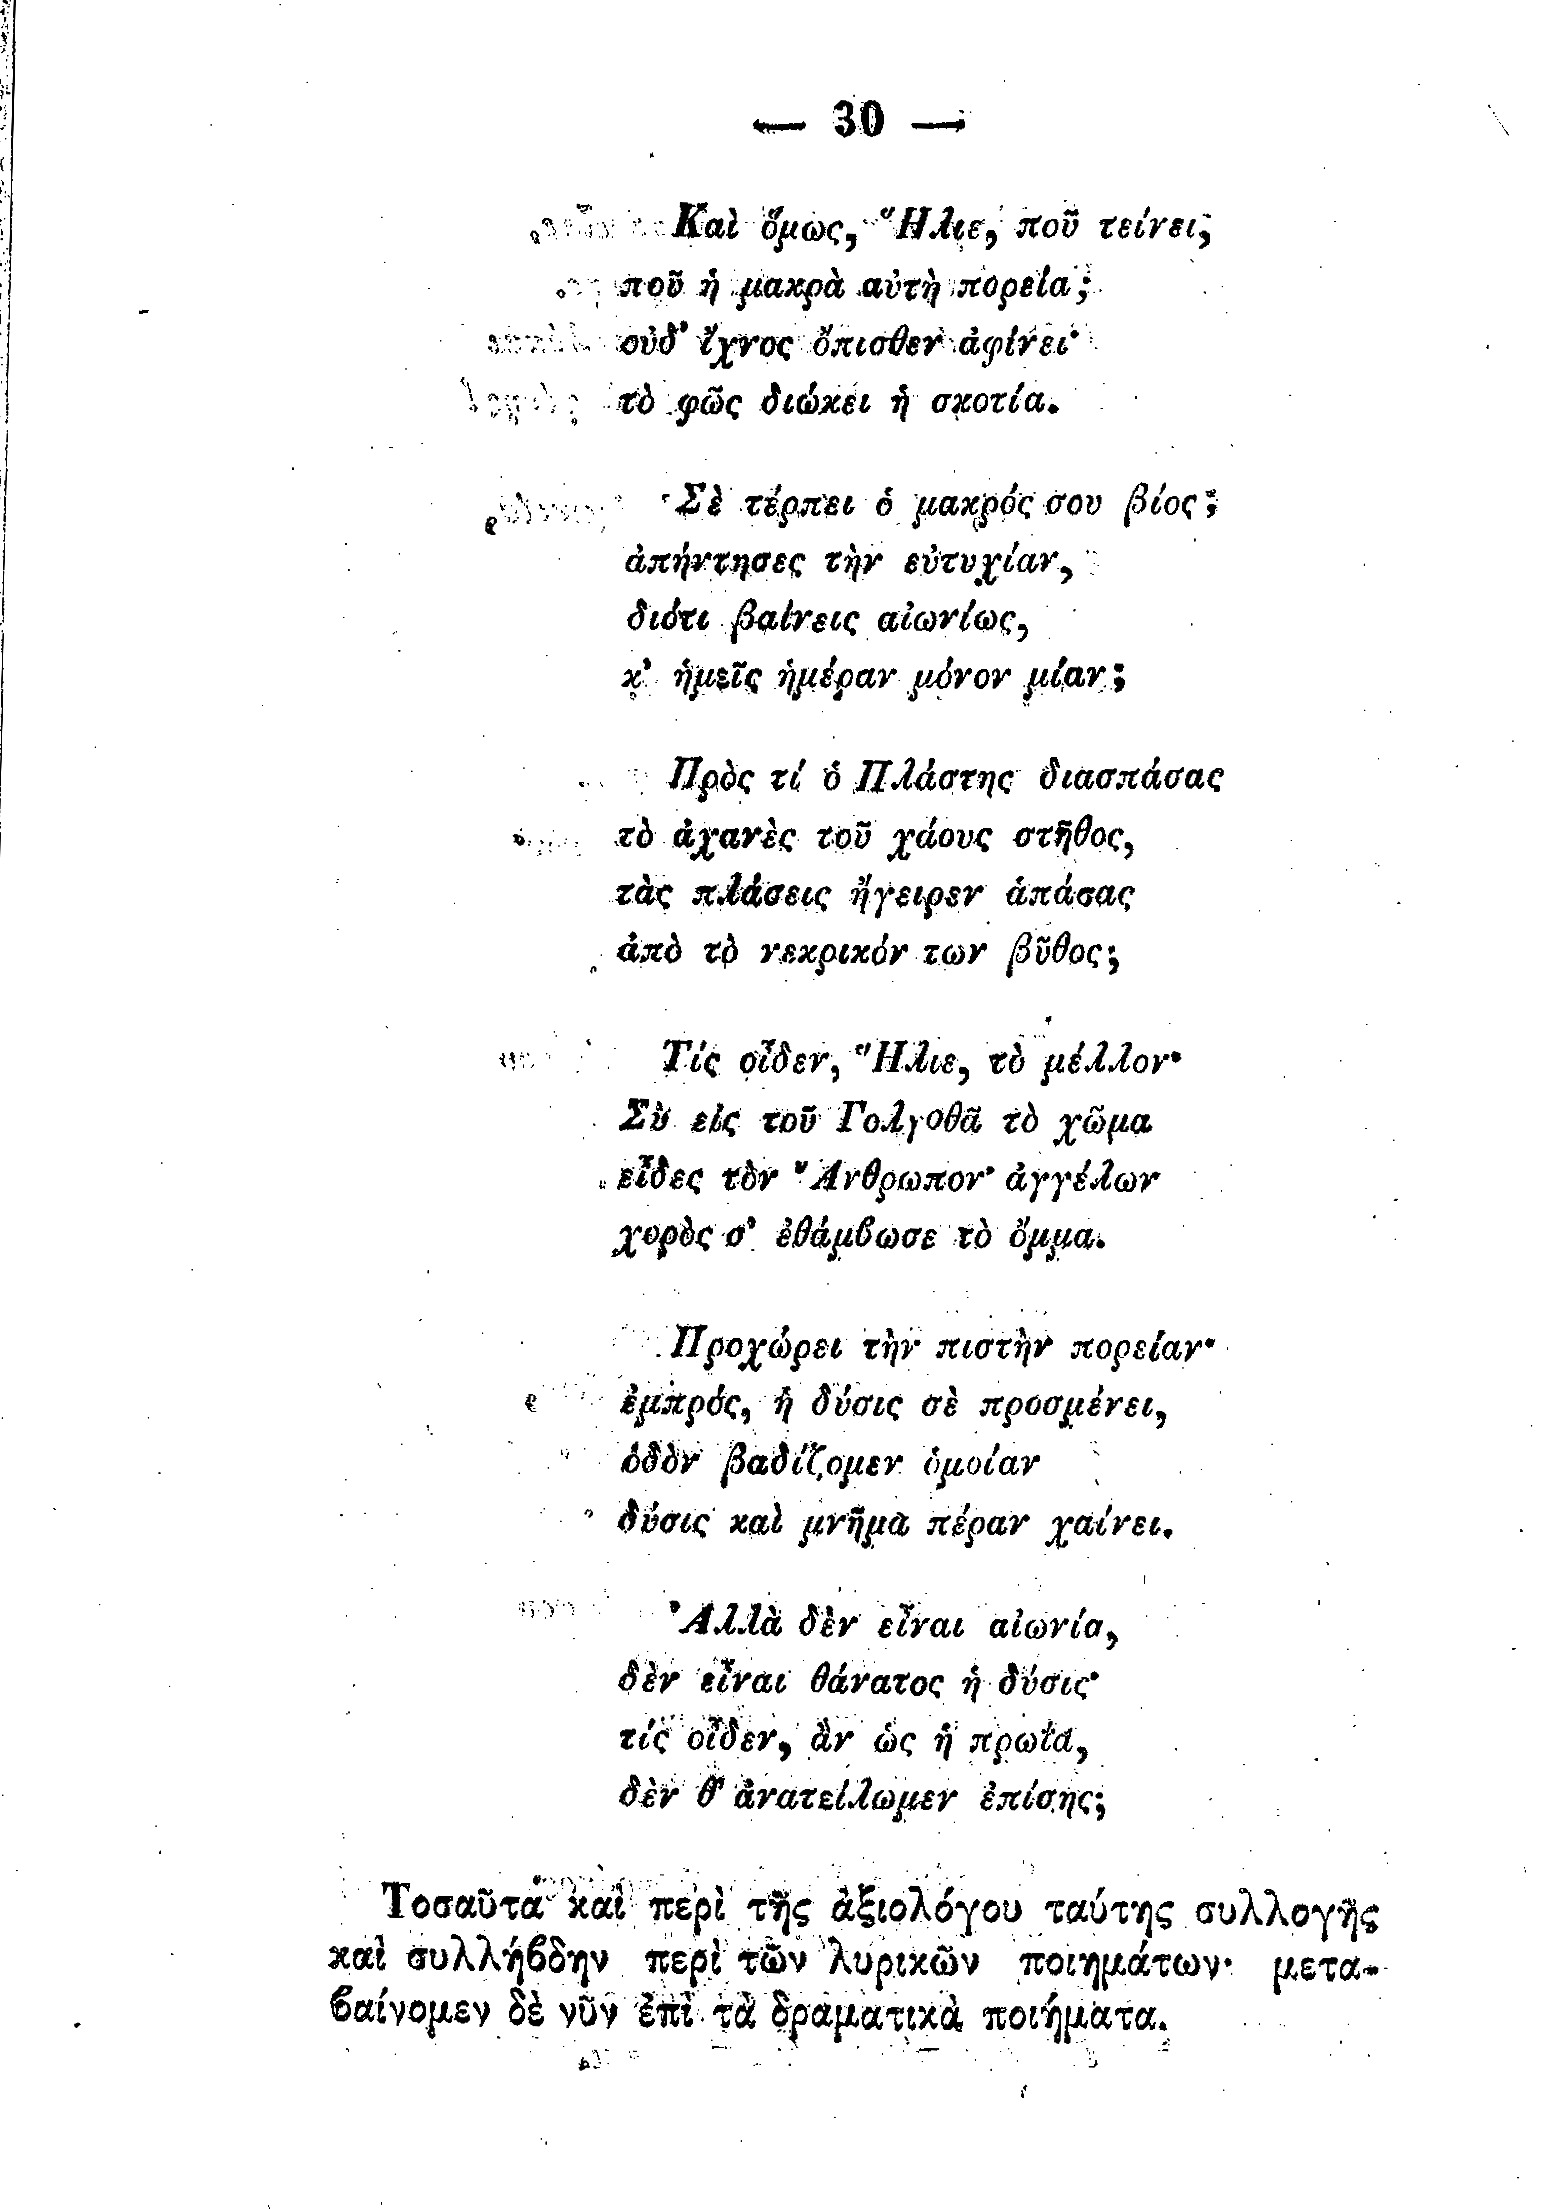 — 30 —
Καὶ ὅμως, Ἥλιε, ποῦ τείνει,
ποῦ ἡ μακρὰ αὐτὴ πορεία;
οὐδ' ἴχνος ὄπισθεν ἀφίνει·
τὸ φῶς διώκει ἡ σκοτία.
Σὲ τέρπει ὁ μακρός σου βίος;
ἀπήντησες τὴν εὐτυχίαν,
διότι βαίνεις αἰωνίως,
κ' ἡμεῖς ἡμέραν μόνον μίαν;
Πρὸς τί ὁ Πλάστης διασπάσας
τὸ ἀχανὲς τοῦ χάους στῆθος,
τὰς πλάσεις ἤγειρεν ἁπάσας
ἀπὸ τὸ νεκρικόν των βῦθος;
Τίς οἶδεν, Ἥλιε, τὸ μέλλον·
Σὺ εἰς τοῦ Γολγοθᾶ τὸ χῶμα
εἶδες τὸν Ἄνθρωπον· ἀγγέλων
χορὸς σ' ἐθάμβωσε τὸ ὄμμα.
Προχώρει τὴν πιστὴν πορείαν·
ἐμπρός, ἡ δύσις σὲ προσμένει,
ὁδὸν βαδίζομεν ὁμοίαν
δύσις καὶ μνῆμα πέραν χαίνει.
Ἀλλὰ δὲν εἶναι αἰωνία,
δὲν εἶναι θάνατος ἡ δύσις·
τίς οἶδεν, ἂν ὡς ἡ πρωΐα,
δὲν θ' ἀνατείλωμεν ἐπίσης;
Τοσαῦτα καὶ περὶ τῆς ἀξιολόγου ταύτης συλλογῆς
καὶ συλλήβδην περὶ τῶν λυρικῶν ποιημάτων· μετα-
βαίνομεν δὲ νῦν ἐπὶ τὰ δραματικὰ ποιήματα.